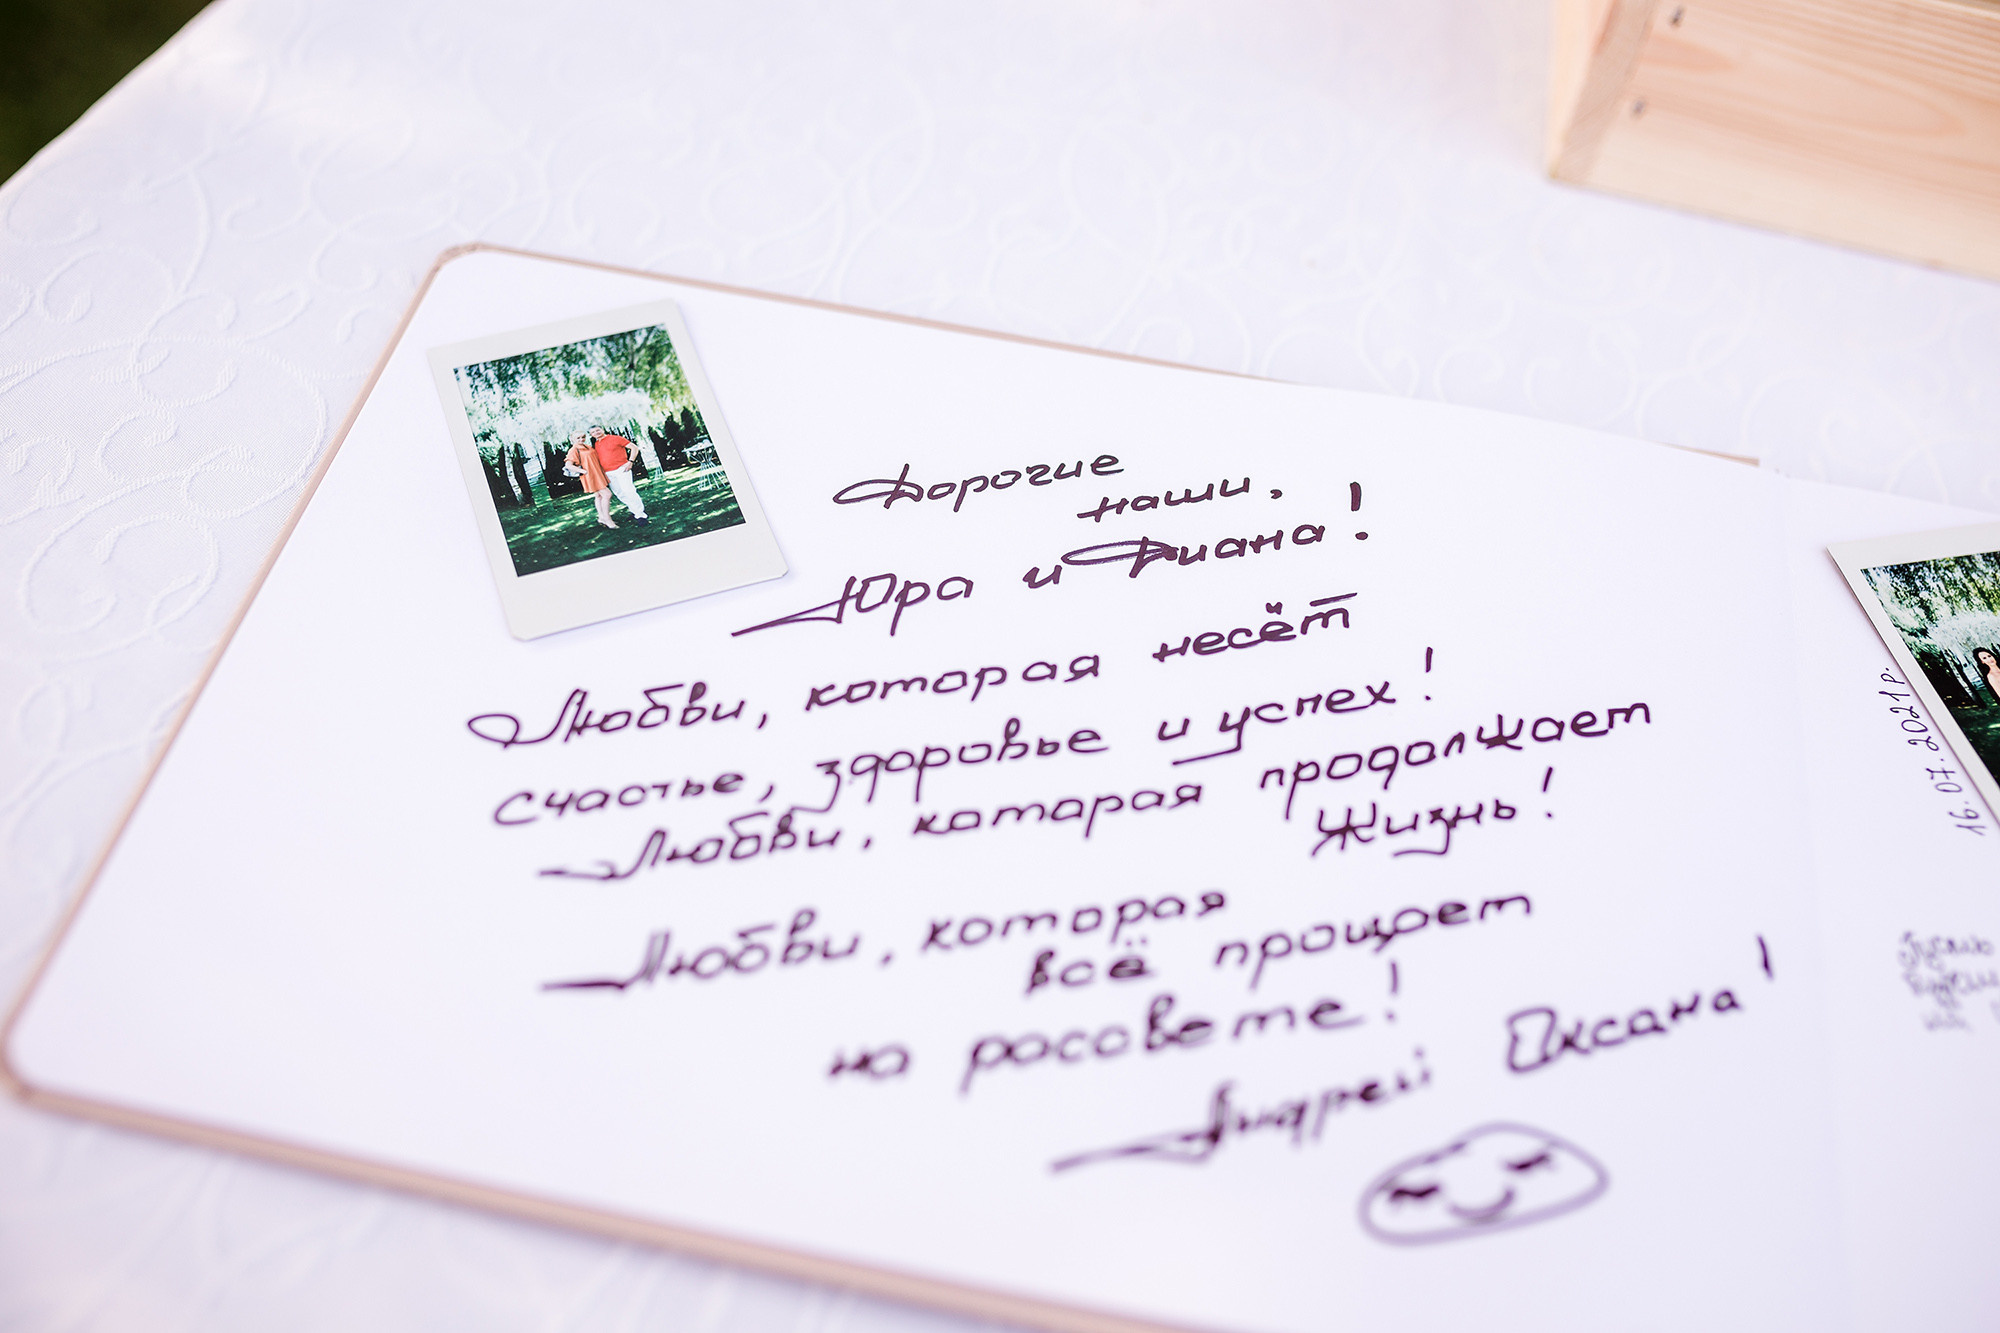 Дорогие
наши,
Юра и Диана!
Любви, которая несёт
счастье, здоровье и успех!
Любви, которая продолжает
Жизнь!
Любви, которая
всё прощает
на расовете!
Андрей Оксана!
16.07.2021р.